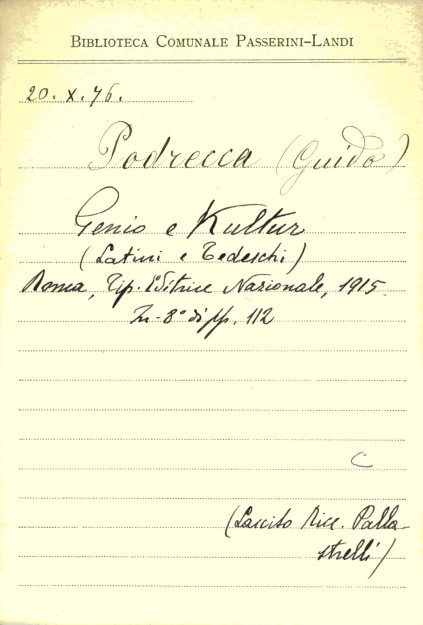 BIBLIOTECA COMUNALE PASSERINI-LANDI
20. X. 76.
Podrecca (Guido)
Genio e Kultur
(Latini e Tedeschi)
Roma, Tip. Editrice Nazionale, 1915
In-8° di pp. 112
C
(Lascito Ricc. Palla-
strelli)